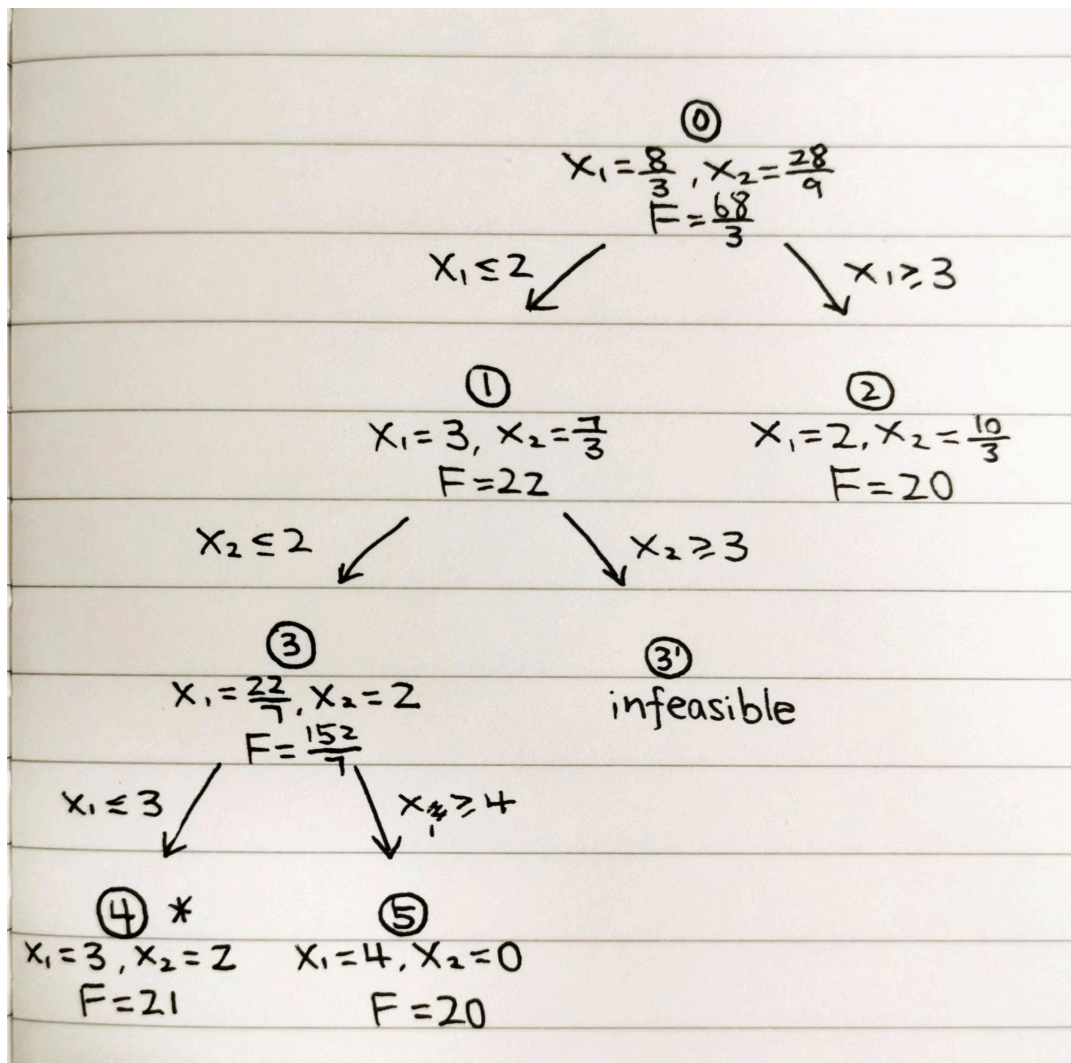 ⓪
x₁ = 8/3, x₂ = 28/9
F = 68/3
x₁ ≤ 2
x₁ ≥ 3
①
x₁ = 3, x₂ = 7/3
F = 22
②
x₁ = 2, x₂ = 10/3
F = 20
x₂ ≤ 2
x₂ ≥ 3
③
x₁ = 22/7, x₂ = 2
F = 152/7
③'
infeasible
x₁ ≤ 3
x₁ ≥ 4
④ *
x₁ = 3, x₂ = 2
F = 21
⑤
x₁ = 4, x₂ = 0
F = 20